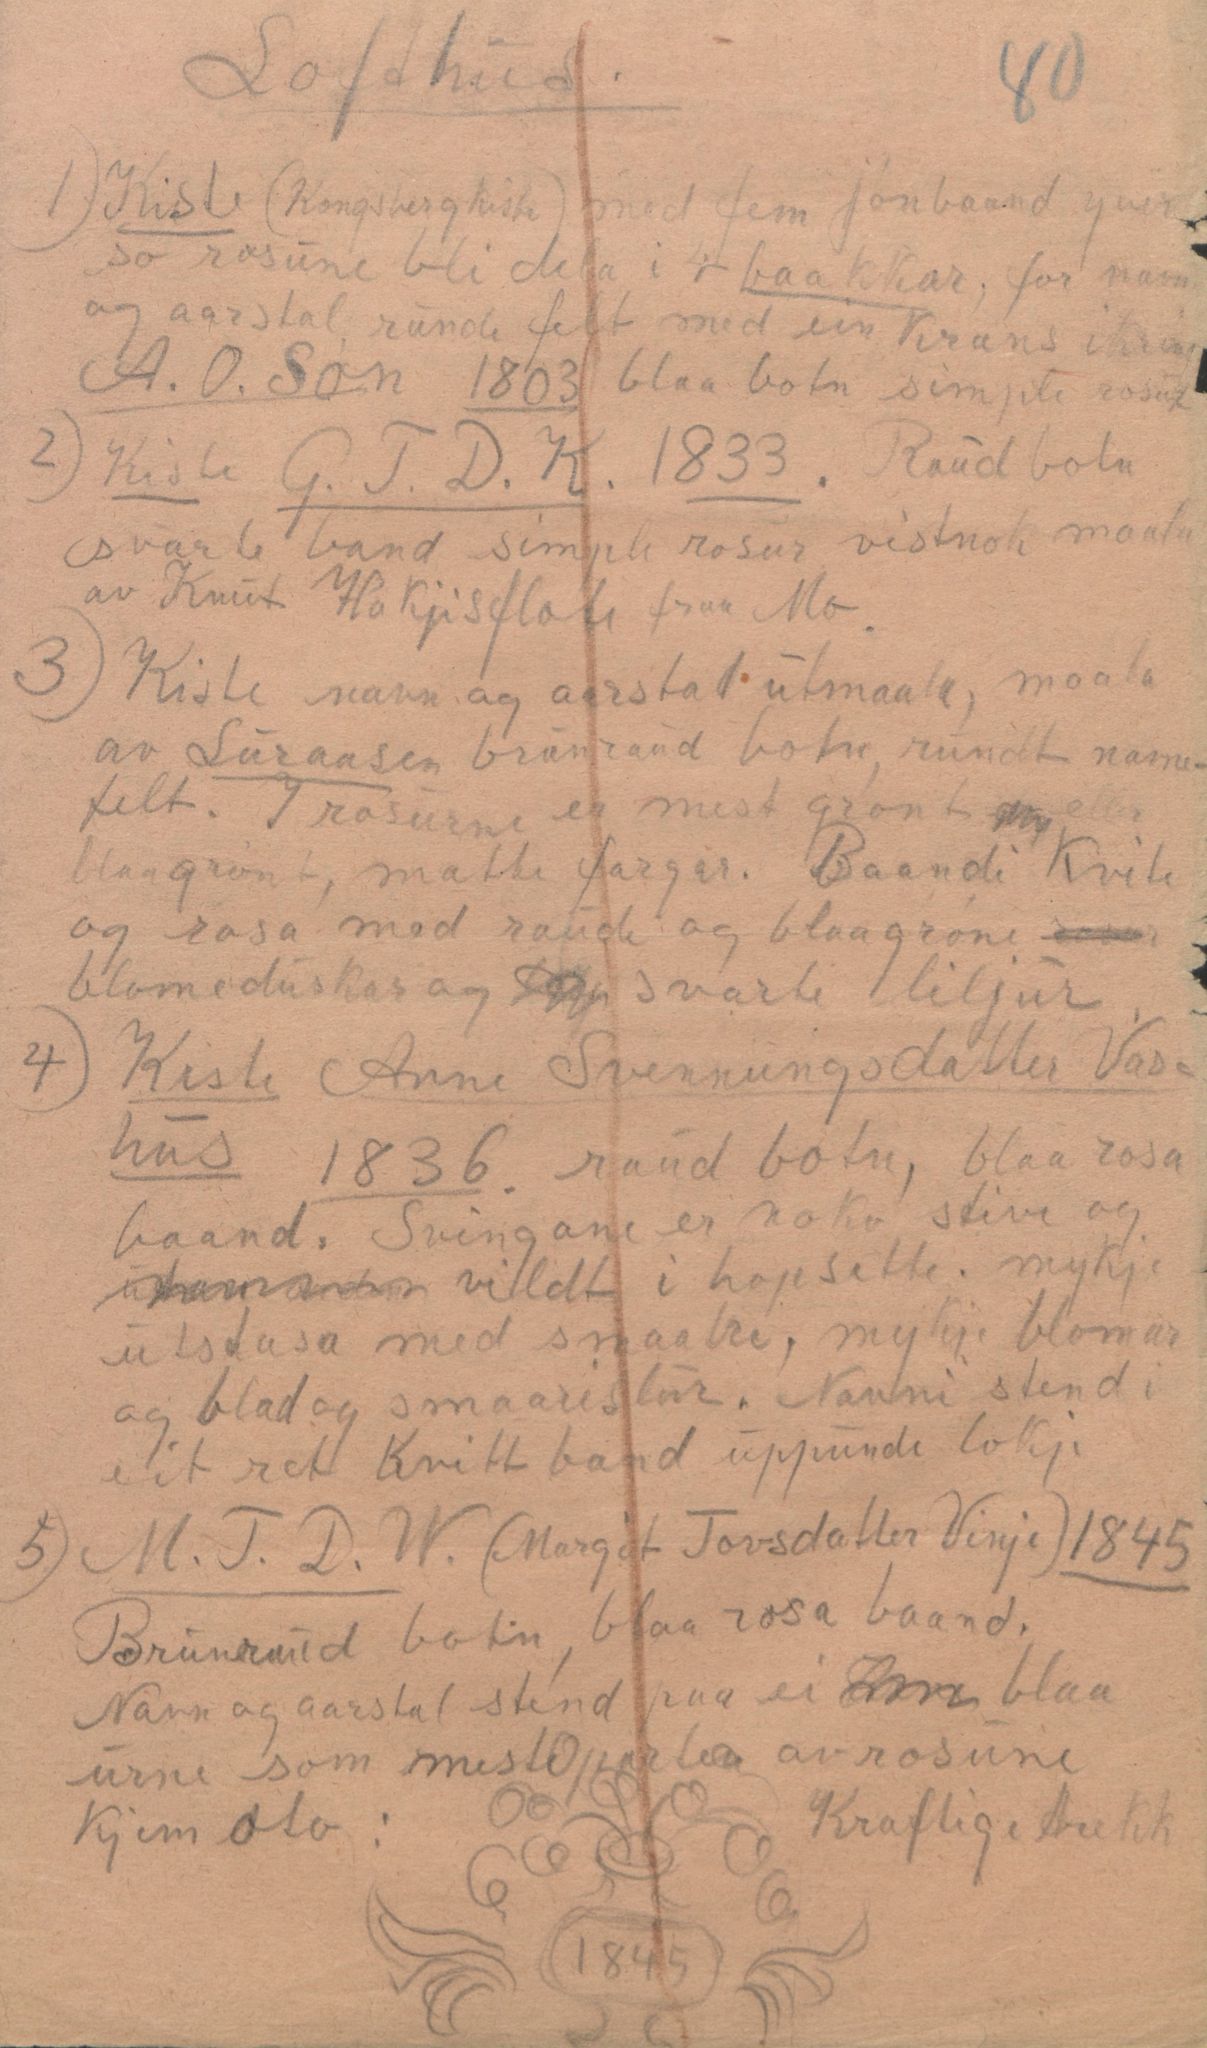 Lofthus.
40
1) Kiste (Kongsbergkiste) med fem jönbaand yver
so rosune bli dela i 4 baakkar, for navn
og aarstal runde felt med ein Krans ikring
A. O. Søn 1803 blaa botn simple rosur
2) Kiste G. T. D. K. 1833. Raud botn
svarte band simple rosur vistnok maala
av Knut Hakjisflote fraa Mo.
3) Kiste navn og aarstal utmaala, maala
av Luraasen brunraud botn, rundt name-
felt. I rosurne er mest grønt eller
blaagrønt, matte fargar. Baandi Kvite
og rosa med raude og blaagrøne
blomeduskar og svarte liljur.
4) Kiste Anne Svennungsdatter Vaa-
hus 1836. raud botn, blaa rosa
baand. Svingane er noko stive og
villdt i hopsette. mykje
utstasa med smaatri, mykje blomar
og blad og smaaristur. Navni stend i
eit ret Kvitt band uppunde lokje
5) M. T. D. W. (Margit Tovsdatter Vinje) 1845
Brunraud botn, blaa rosa baand.
Navn og aarstal stend paa ei blaa
urne som mestoparten av rosune
Kjem oto: Kraftige trekk
1845